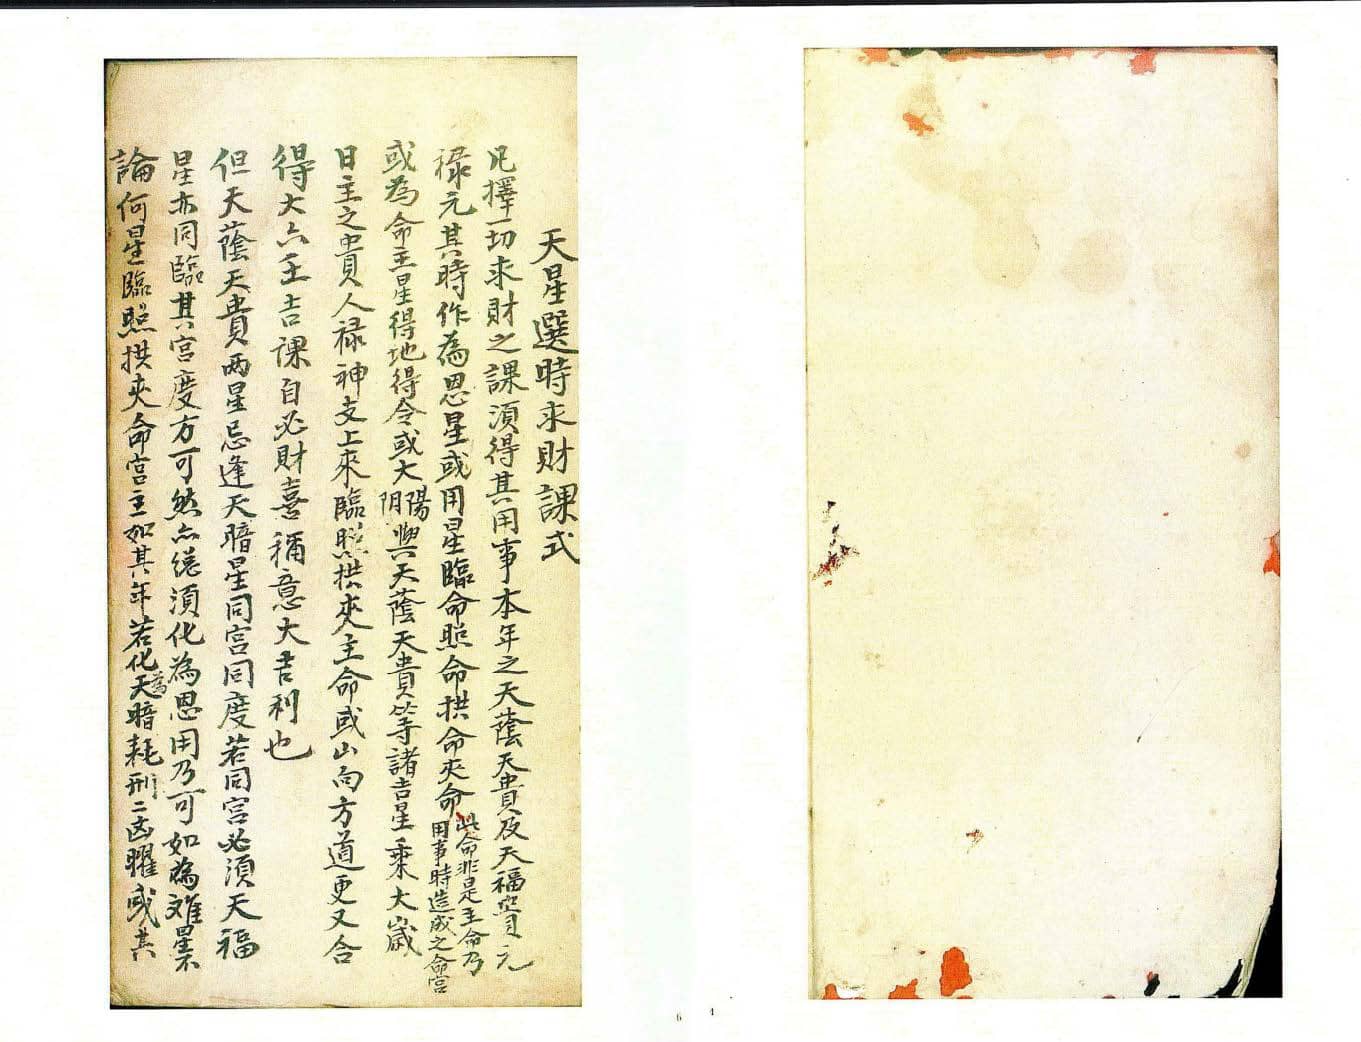 天星選時求財課式
凡擇一切求財之課須得其用事本年之天蔭天貴及天福官元
祿元其時作為恩星或用星臨命照命拱命夾命此命非是主命乃用事時造成之命宮
或為命主星得地得令或大陽阴與天蔭天貴等諸吉星乘大歲
日主之貴人祿神支上來臨照拱夾主命或山向方道更又合
得大六壬吉課自必財喜稱意大吉利也
但天蔭天貴兩星忌逢天暗星同宮同度若同宮必須天福
星亦同臨其宮度方可然亦總須化為恩用乃可如為难星不
論何星臨照拱夾命宮主如其年若化為天暗耗刑二凶曜或其
6 4